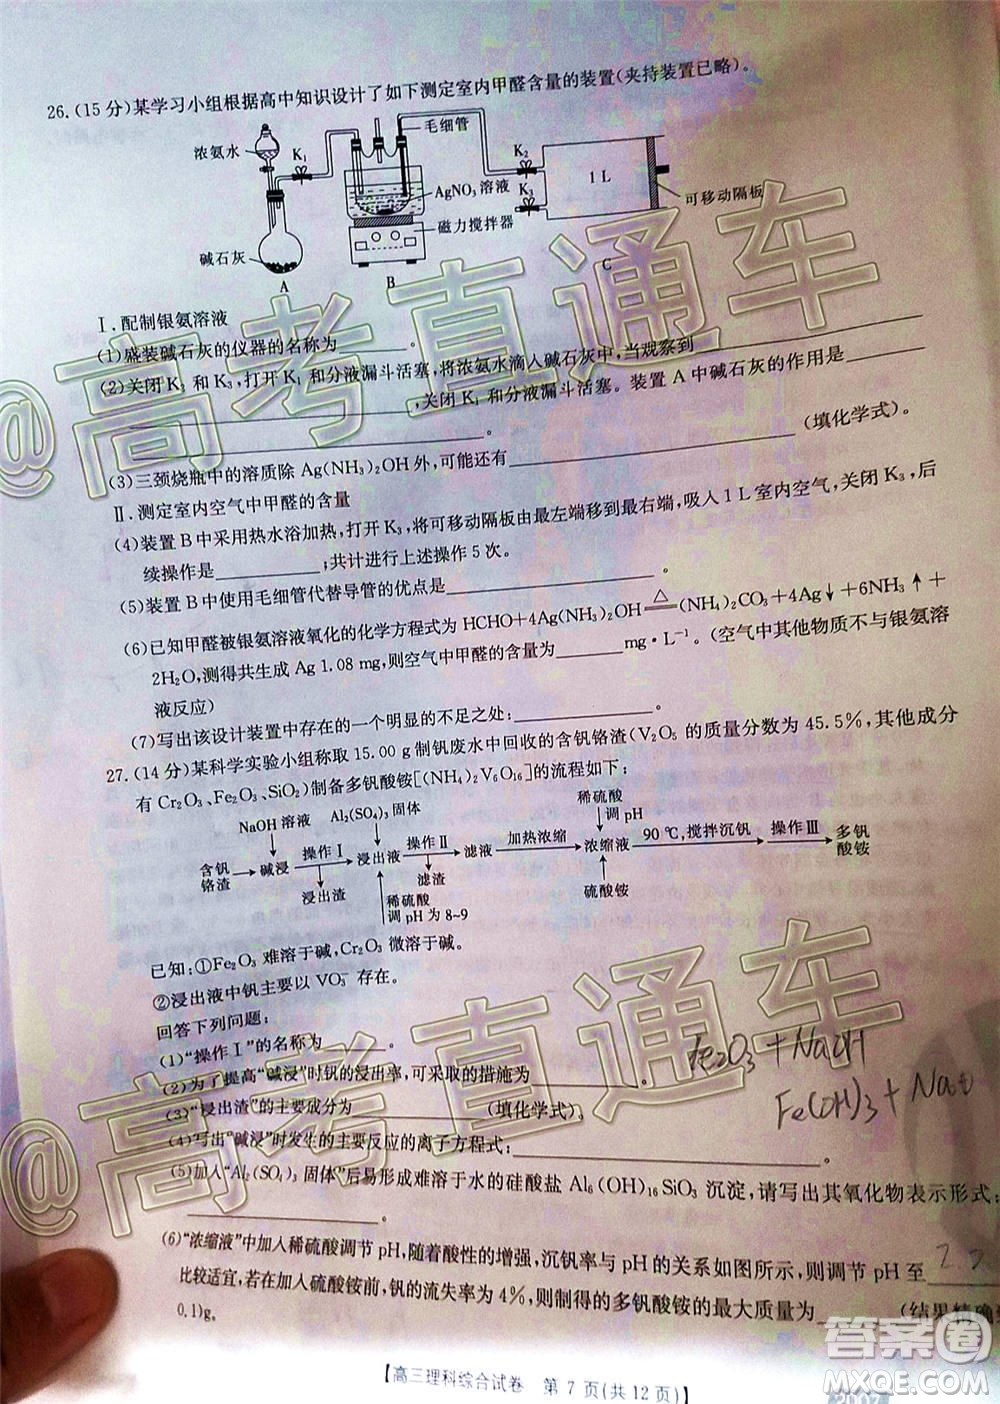 26.(15分)某学习小组根据高中知识设计了如下测定室内甲醛含量的装置(夹持装置已略)。
浓氨水
K₁
毛细管
K₂
K₃
1 L
AgNO₃ 溶液
可移动隔板
磁力搅拌器
碱石灰
A
B
C
Ⅰ.配制银氨溶液
(1)盛装碱石灰的仪器的名称为________。
(2)关闭K₂和K₃,打开K₁和分液漏斗活塞,将浓氨水滴入碱石灰中,当观察到________
________,关闭K₁和分液漏斗活塞。装置A中碱石灰的作用是________
________。
(3)三颈烧瓶中的溶质除Ag(NH₃)₂OH外,可能还有________(填化学式)。
Ⅱ.测定室内空气中甲醛的含量
(4)装置B中采用热水浴加热,打开K₃,将可移动隔板由最左端移到最右端,吸入1 L室内空气,关闭K₃,后
续操作是________;共计进行上述操作5次。
(5)装置B中使用毛细管代替导管的优点是________。
(6)已知甲醛被银氨溶液氧化的化学方程式为HCHO+4Ag(NH₃)₂OH=△=(NH₄)₂CO₃+4Ag↓+6NH₃↑+
2H₂O,测得共生成Ag 1.08 mg,则空气中甲醛的含量为________mg·L⁻¹。(空气中其他物质不与银氨溶
液反应)
(7)写出该设计装置中存在的一个明显的不足之处:________。
27.(14分)某科学实验小组称取15.00 g制钒废水中回收的含钒铬渣(V₂O₅的质量分数为45.5%,其他成分
有Cr₂O₃、Fe₂O₃、SiO₂)制备多钒酸铵[(NH₄)₂V₆O₁₆]的流程如下:
NaOH溶液 Al₂(SO₄)₃固体 稀硫酸 调pH
含钒铬渣→碱浸→操作Ⅰ→浸出液→操作Ⅱ→滤液→加热浓缩→浓缩液→90 ℃,搅拌沉钒→操作Ⅲ→多钒酸铵
浸出渣 稀硫酸 调pH为8~9 滤渣 硫酸铵
已知:①Fe₂O₃难溶于碱,Cr₂O₃微溶于碱。
②浸出液中钒主要以VO₃⁻存在。
回答下列问题:
(1)“操作Ⅰ”的名称为________。
(2)为了提高“碱浸”时钒的浸出率,可采取的措施为________。
Fe₂O₃ + NaOH
(3)“浸出渣”的主要成分为________(填化学式)。
Fe(OH)₃ +
(4)写出“碱浸”时发生的主要反应的离子方程式:________。
(5)加入“Al₂(SO₄)₃固体”后易形成难溶于水的硅酸盐Al₆(OH)₁₆SiO₃沉淀,请写出其氧化物表示形式:
________。
(6)“浓缩液”中加入稀硫酸调节pH,随着酸性的增强,沉钒率与pH的关系如图所示,则调节pH至________
比较适宜,若在加入硫酸铵前,钒的流失率为4%,则制得的多钒酸铵的最大质量为________(结果精确
0.1)g。
【高三理科综合试卷 第7页(共12页)】
@高考直通车
@高考直通车
答案圈